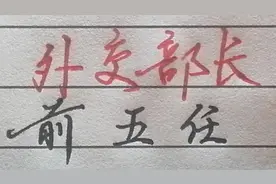 外交部长
前五任